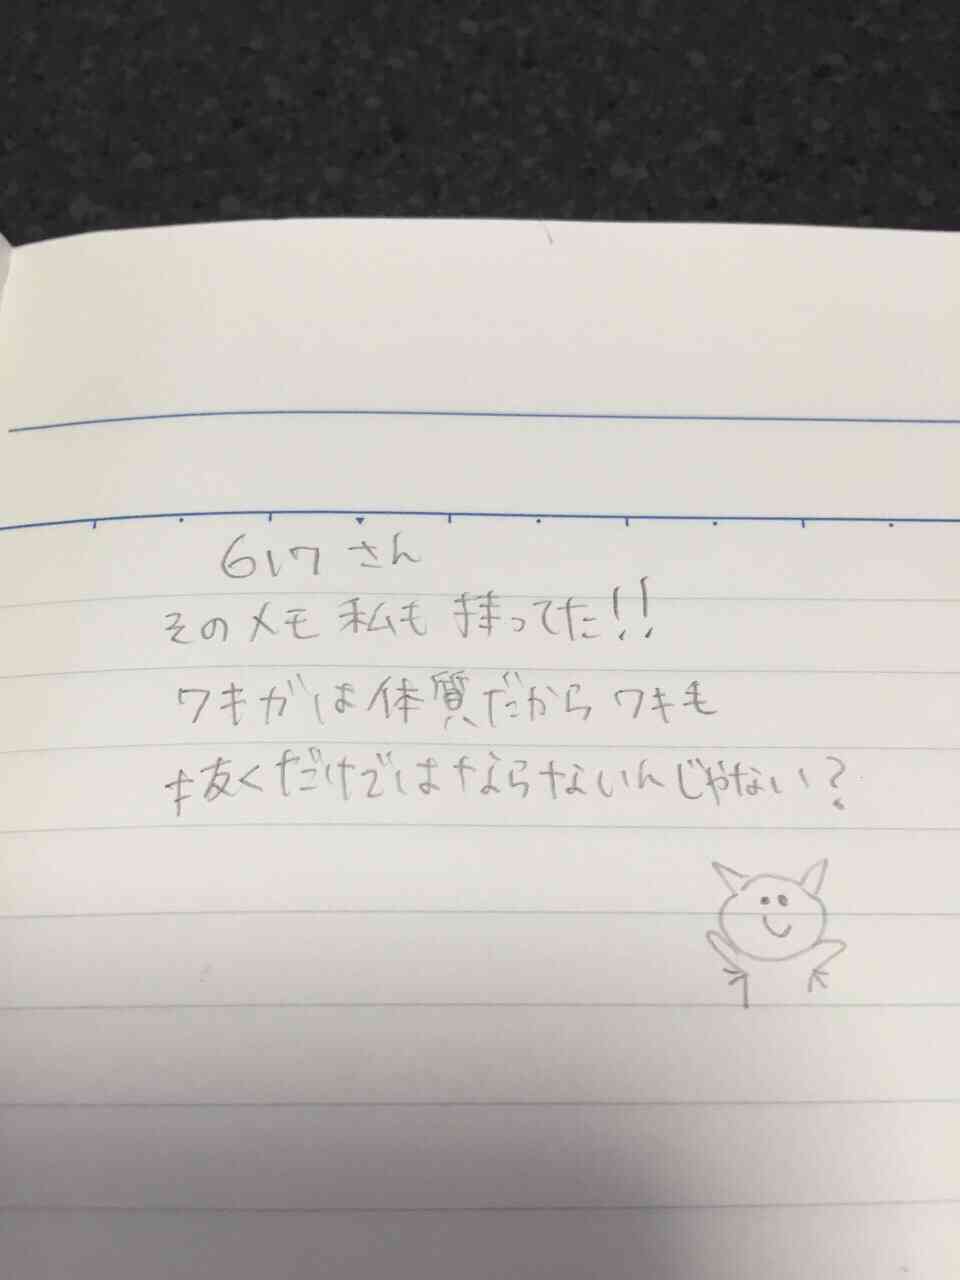 617 さん
そのメモ 私も 持ってた!!
ワキガは体質だから ワキ毛
抜くだけではならないんじゃない?